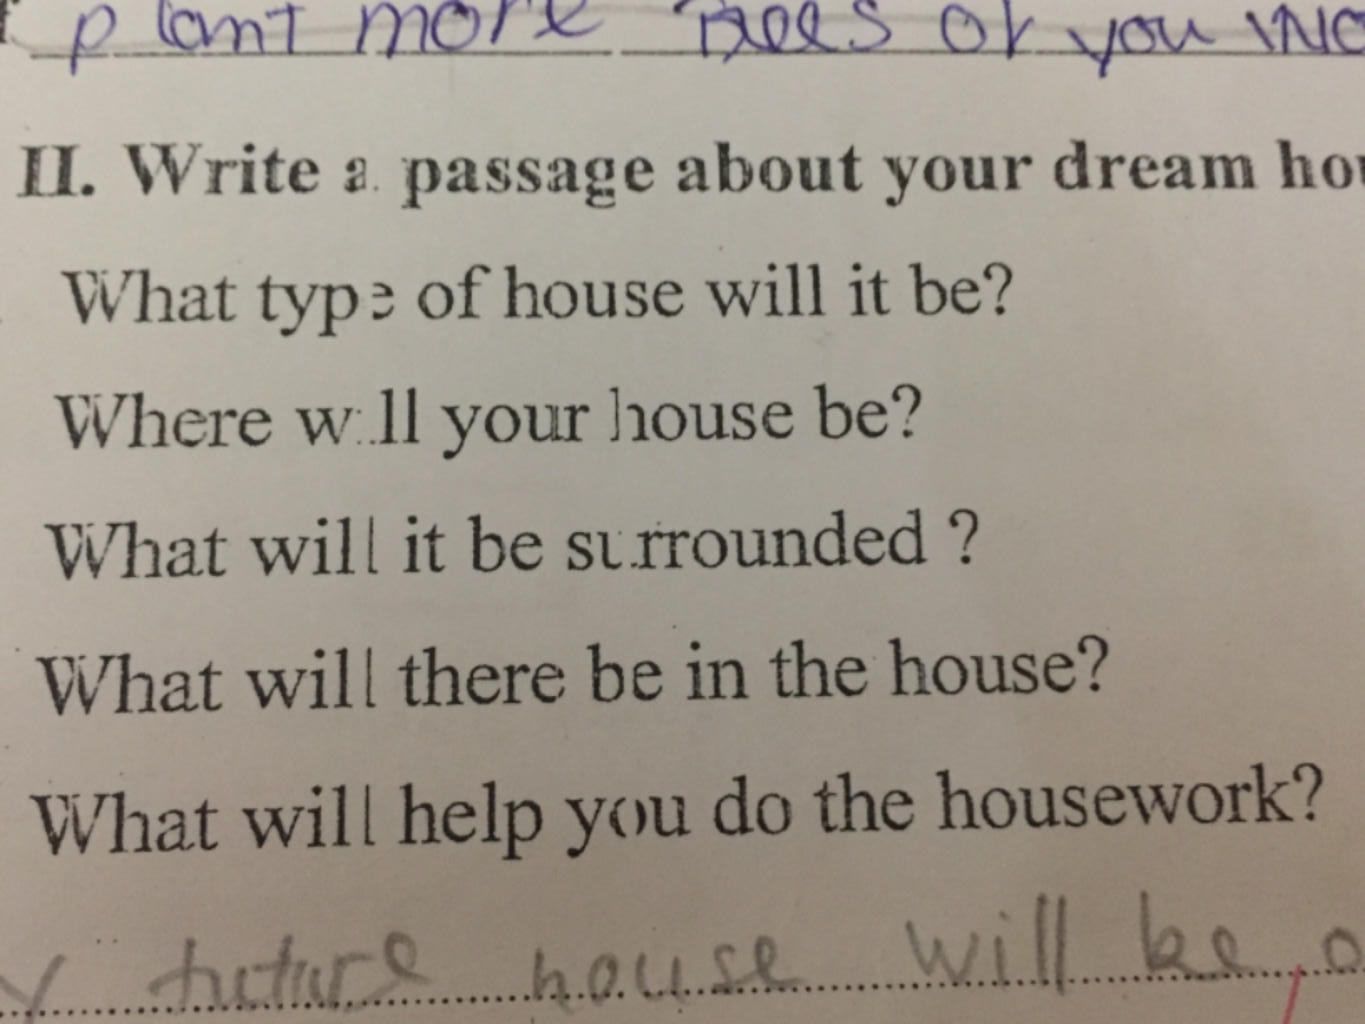 plant more trees or you wo
II. Write a passage about your dream hou
What type of house will it be?
Where will your house be?
What will it be surrounded ?
What will there be in the house?
What will help you do the housework?
y future house will be a